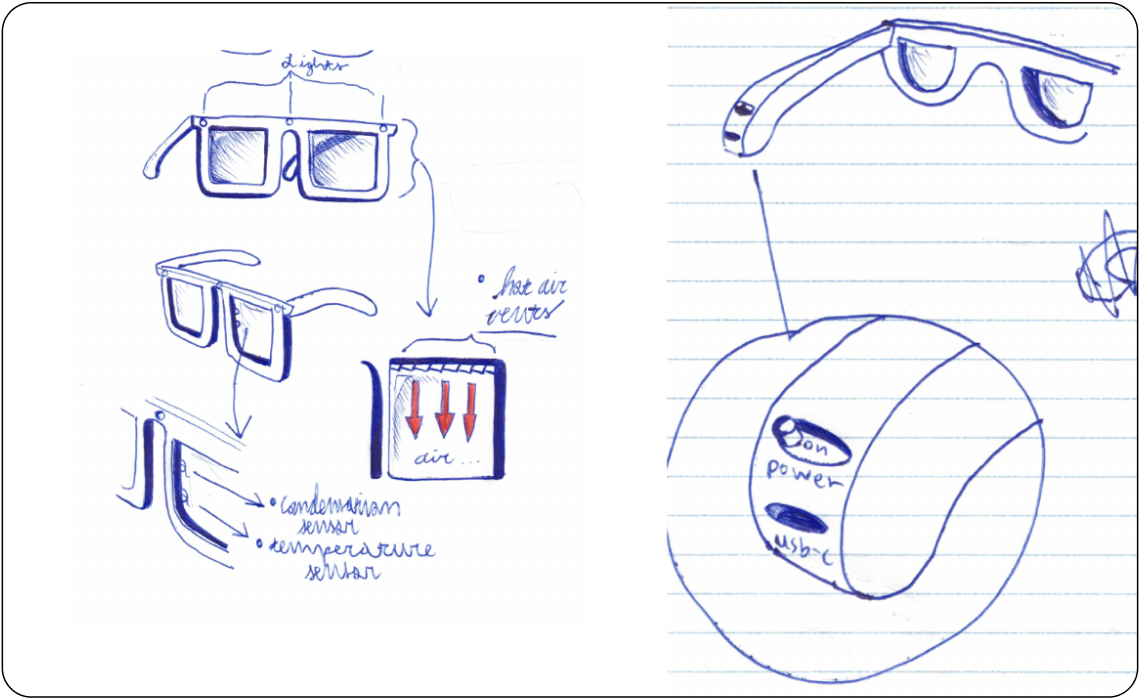 Lights
• hot air
vents
air ...
• condensation
sensor
• temperature
sensor
on
power
usb-c